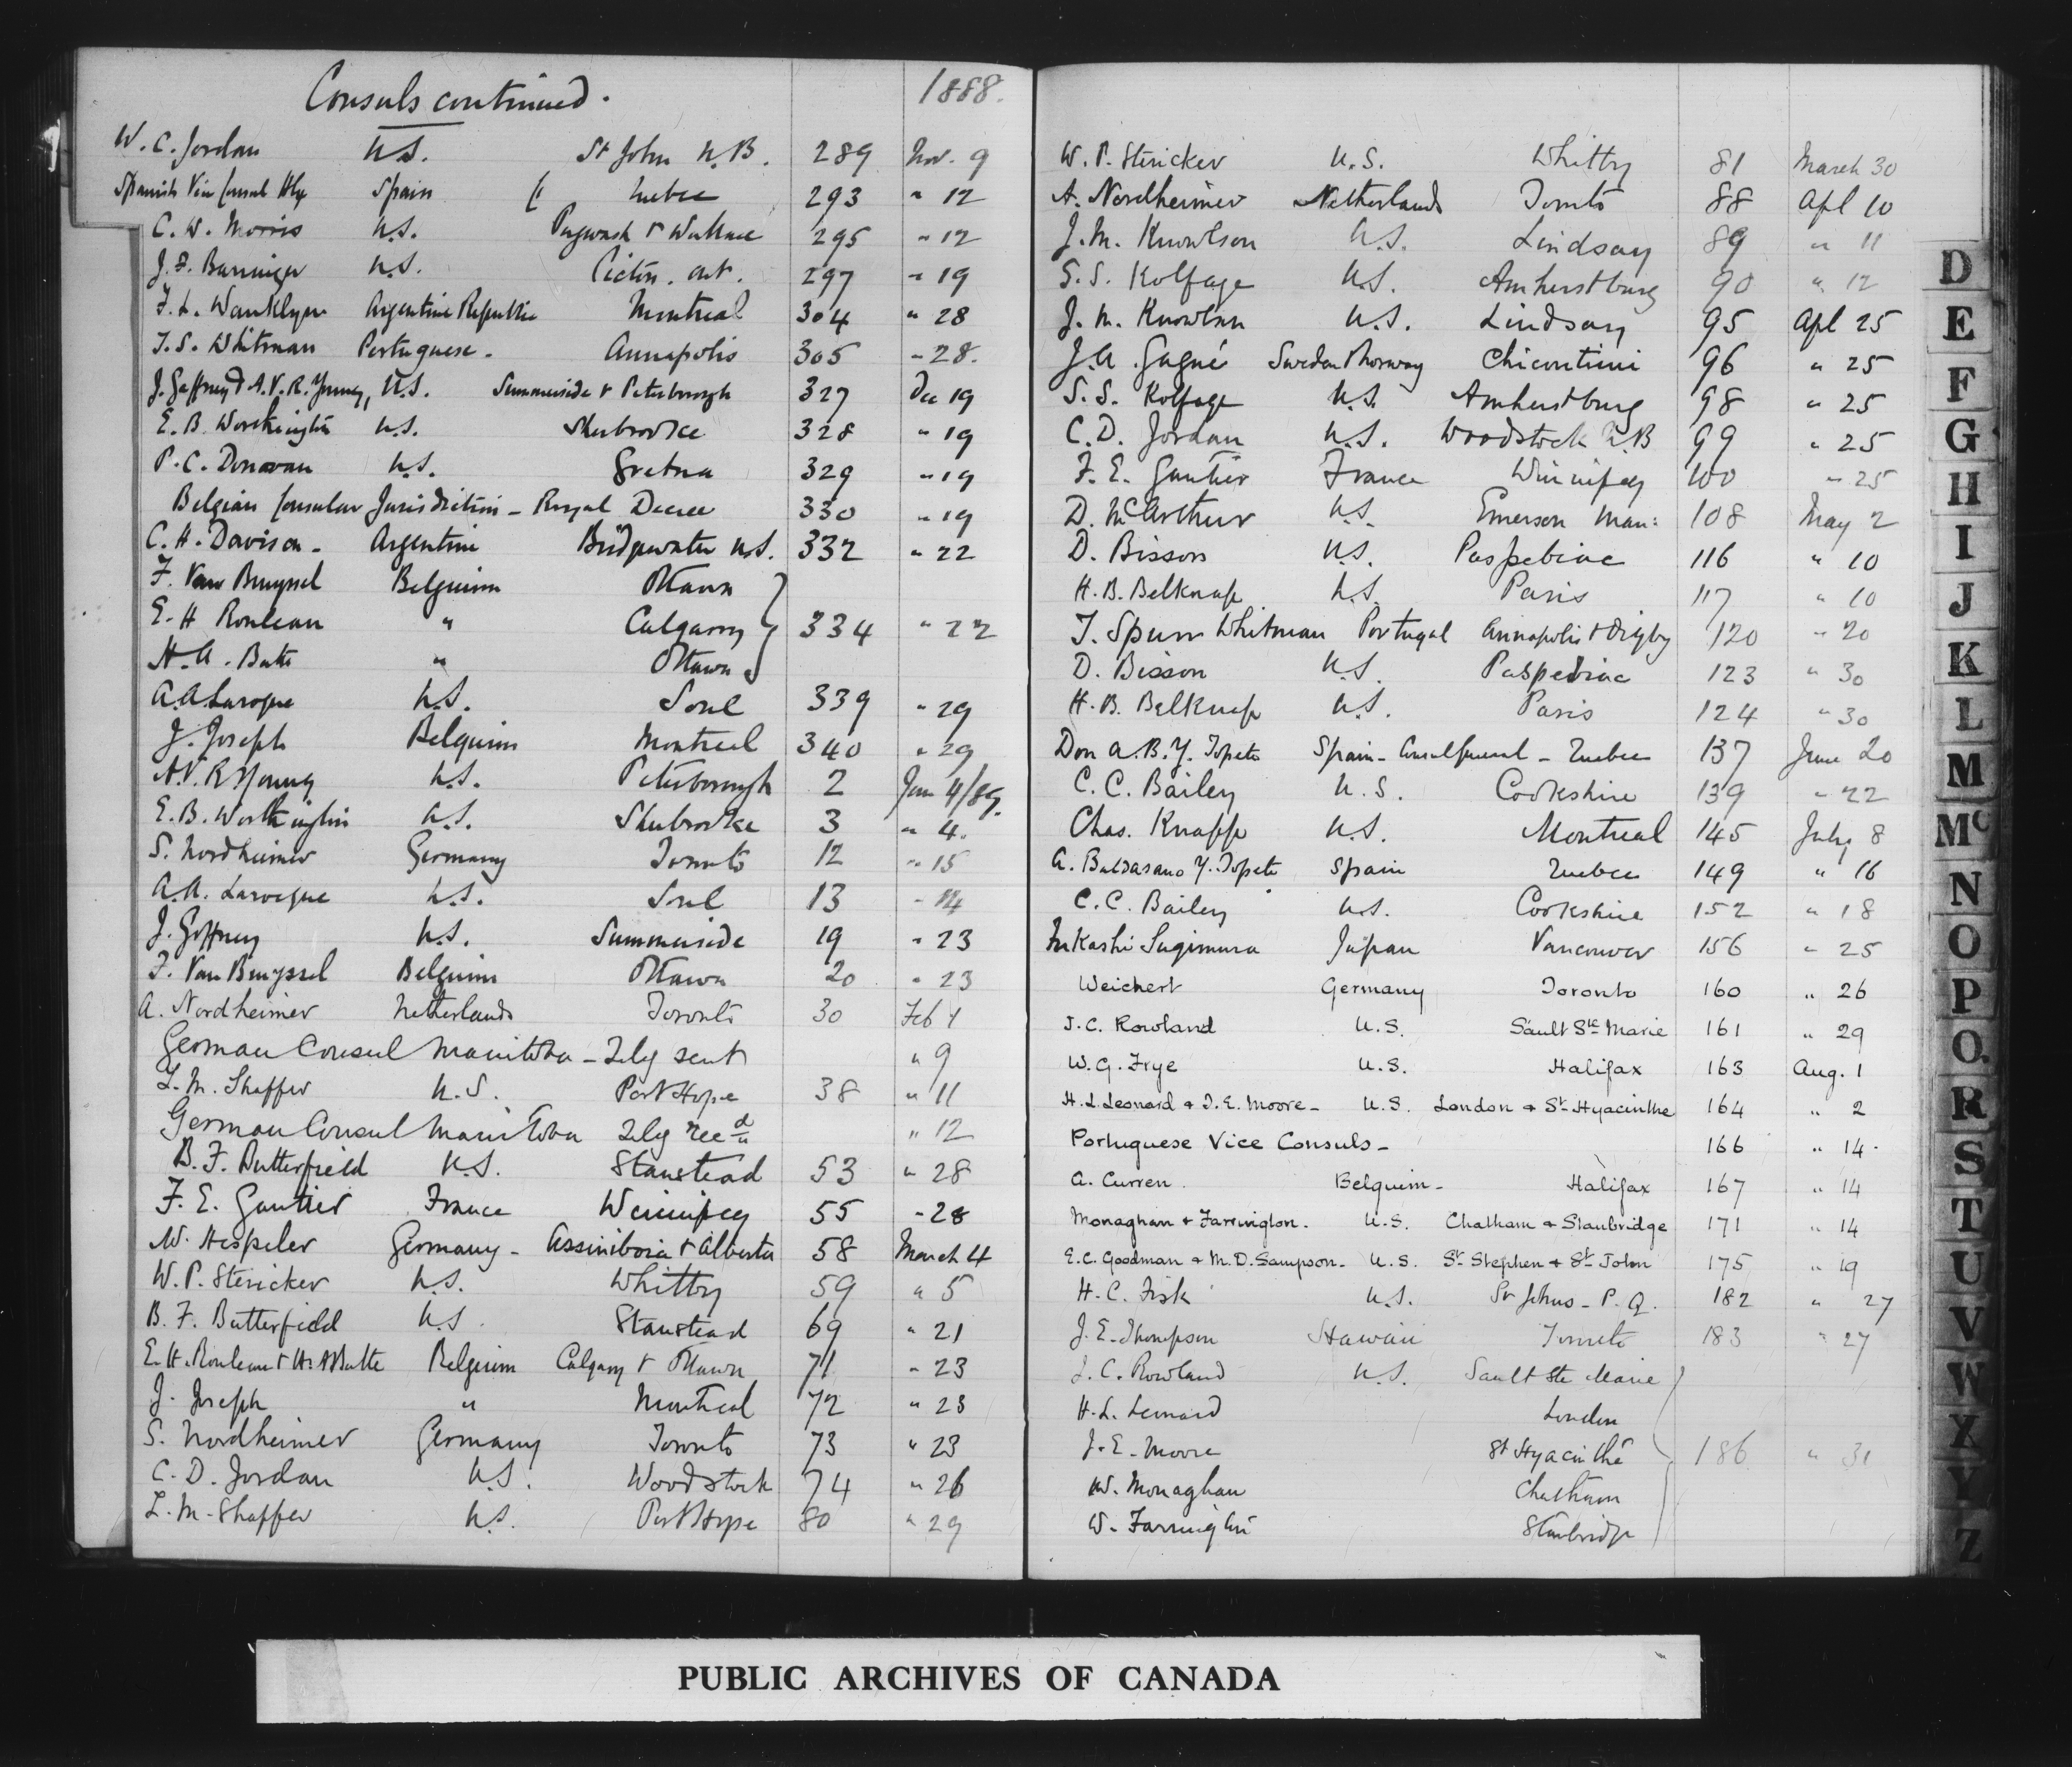 Consuls continued. 1888.
W. C. Jordan U.S. St John N.B. 289 Nov. 9
Spanish Vice Consul Hfx Spain Quebec 293 " 12
C. W. Morris U.S. Pugwash & Wallace 295 " 12
J. F. Barringer U.S. Picton. Ont. 297 " 19
F. L. Wanklyn Argentine Republic Montreal 304 " 28
T. S. Whitman Portuguese. Annapolis 305 " 28.
J. Gaffney & A. V. R. Young, U.S. Summerside & Peterborough 327 Dec 19
E. B. Worthington U.S. Sherbrooke 328 " 19
P. C. Donovan U.S. Gretna 329 " 19
Belgian Consular Jurisdiction - Royal Decree 330 " 19
C. H. Davison - Argentine Bridgewater N.S. 332 " 22
F. Van Bruyssel Belguim Ottawa
E. H Rouleau " Calgarry 334 " 22
H. A. Bate " Ottawa
A. A Laroque U.S. Sorel 339 " 29
J. Joseph Belguim Montreal 340 " 29
A. V. R Young U.S. Peterborough 2 Jan 4/89.
E. B. Worthington U.S. Sherbrooke 3 " 4.
S. Nordheimer Germany Toronto 12 " 15
A. A. Larocque U.S. Sorel 13 " 14
J. Gaffney U.S. Summerside 19 " 23
F. Van Bruyssel Belguim Ottawa 20 " 23
A. Nordheimer Netherlands Toronto 30 Feb 1
German Consul Manitoba - Telg sent " 9
L. M. Shaffer U.S. Port Hope 38 " 11
German Consul Manitoba Telg recd " 12
B. F. Butterfield U.S. Stanstead 53 " 28
F. E. Gautier France Winnipeg 55 " 28
W. Hespeler Germany - Assiniboia & Alberta 58 March 4
W. P. Stericker U.S. Whitby 59 " 5
B. F. Butterfield U.S. Stanstead 69 " 21
E. H. Rouleau & H. A Batte Belguim Calgary & Ottawa 71 " 23
J. Joseph " Montreal 72 " 23
S. Nordheimer Germany Toronto 73 " 23
C. D. Jordan U.S. Woodstock 74 " 26
L. M. Shaffer U.S. Port Hope 80 " 29
W. P. Stericker U.S. Whitby 81 March 30
A. Nordheimer Netherlands Toronto 88 Apl 10
J. M. Knowlson U.S. Lindsay 89 " 11
S. S. Kolfage U.S. Amherstburg 90 " 12
J. M. Knowlson U.S. Lindsay 95 Apl 25
J. A. Gagné Sweden & Norway Chicoutimi 96 " 25
S. S. Kolfage U.S. Amherstburg 98 " 25
C. D. Jordan U.S. Woodstock N.B 99 " 25
F. E. Gautier France Winnipeg 100 " 25
D. McArthur U.S. Emerson Man: 108 May 2
D. Bisson U.S. Paspebiac 116 " 10
H. B. Belknap U.S. Paris 117 " 10
T. Spurr Whitman Portugal Annapolis & Digby 120 " 20
D. Bisson U.S. Paspebiac 123 " 30
H. B. Belknap U.S. Paris 124 " 30
Don A. B. Y. Topete Spain - Consul General - Quebec 137 June 20
C. C. Bailey U.S. Cookshire 139 " 22
Chas. Knapp U.S. Montreal 145 July 8
A. Baldasano Y. Topete Spain Quebec 149 " 16
C. C. Bailey U.S. Cookshire 152 " 18
Fukashi Sugimura Japan Vancouver 156 " 25
Weichert Germany Toronto 160 " 26
J. C. Rowland U.S. Sault Ste Marie 161 " 29
W. G. Frye U.S. Halifax 163 Aug. 1
H. L. Leonard & J. E. Moore - U.S. London & St Hyacinthe 164 " 2
Portuguese Vice Consuls - 166 " 14.
A. Curren. Belguim - Halifax 167 " 14
Monaghan & Farrington. U.S. Chatham & Stanbridge 171 " 14
E. C. Goodman & M. D. Sampson - U.S. St Stephen & St John 175 " 19
H. C. Fisk U.S. St Johns - P. Q. 182 " 27
J. E. Thompson Hawaii Toronto 183 " 27
J. C. Rowland U.S. Sault Ste Marie
H. L. Leonard London
J. E. Moore St Hyacinthe 186 " 31
W. Monaghan Chatham
W. Farrington Stanbridge
D
E
F
G
H
I
J
K
L
M
Mc
N
O
P
Q.
R
S
T
U
V
W
X
Y
Z
PUBLIC ARCHIVES OF CANADA